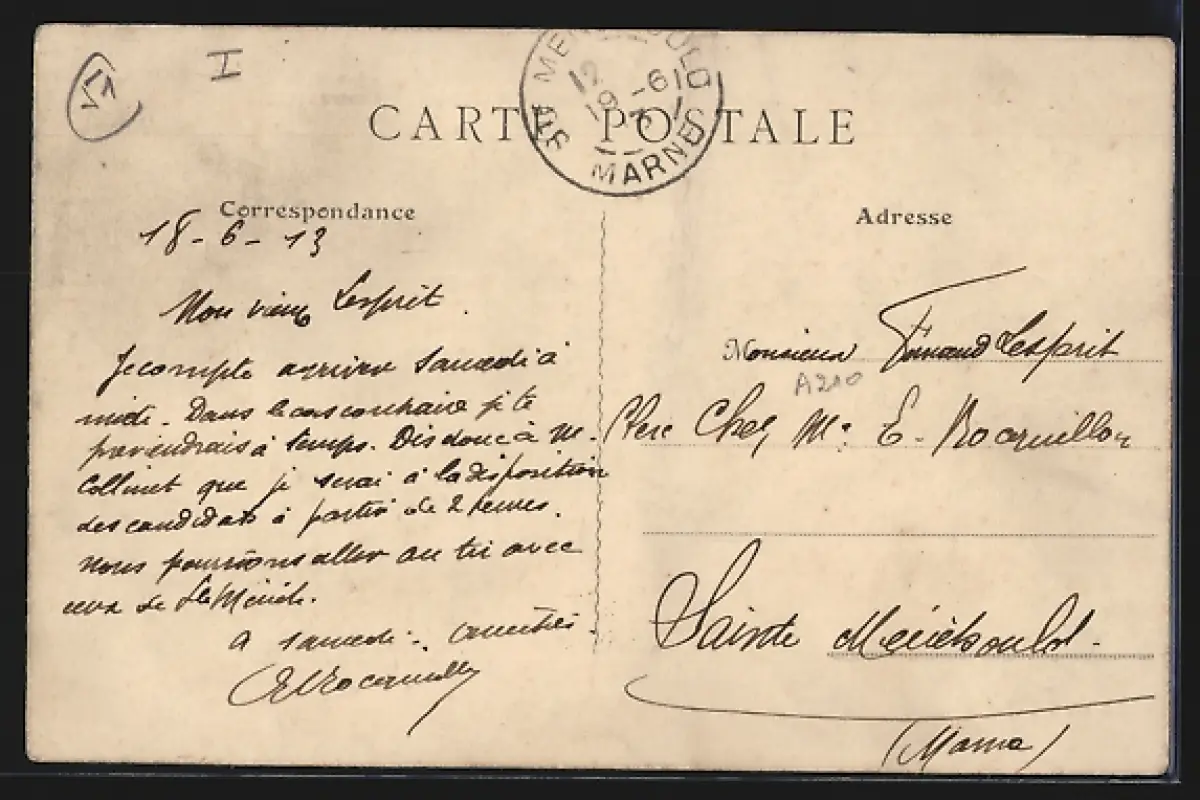 I
STE MENEHOULD
12
19 -6
13
MARNE
CARTE POSTALE
Correspondance
18-6-13
Mon vieux Lesprit.
Je compte arriver samedi à
midi. Dans le cas contraire je te
préviendrais à temps. Dis donc à M.
Collinet que je serai à la disposition
des candidats à partir de 2 heures.
Nous pourrions aller au tir avec
ceux de Ste Ménéh.
A samedi. Amitiés.
Adresse
Monsieur Fernand Lesprit
A210
Clerc Chez Me E. Rocquillon
Sainte Ménéhould.
(Marne)